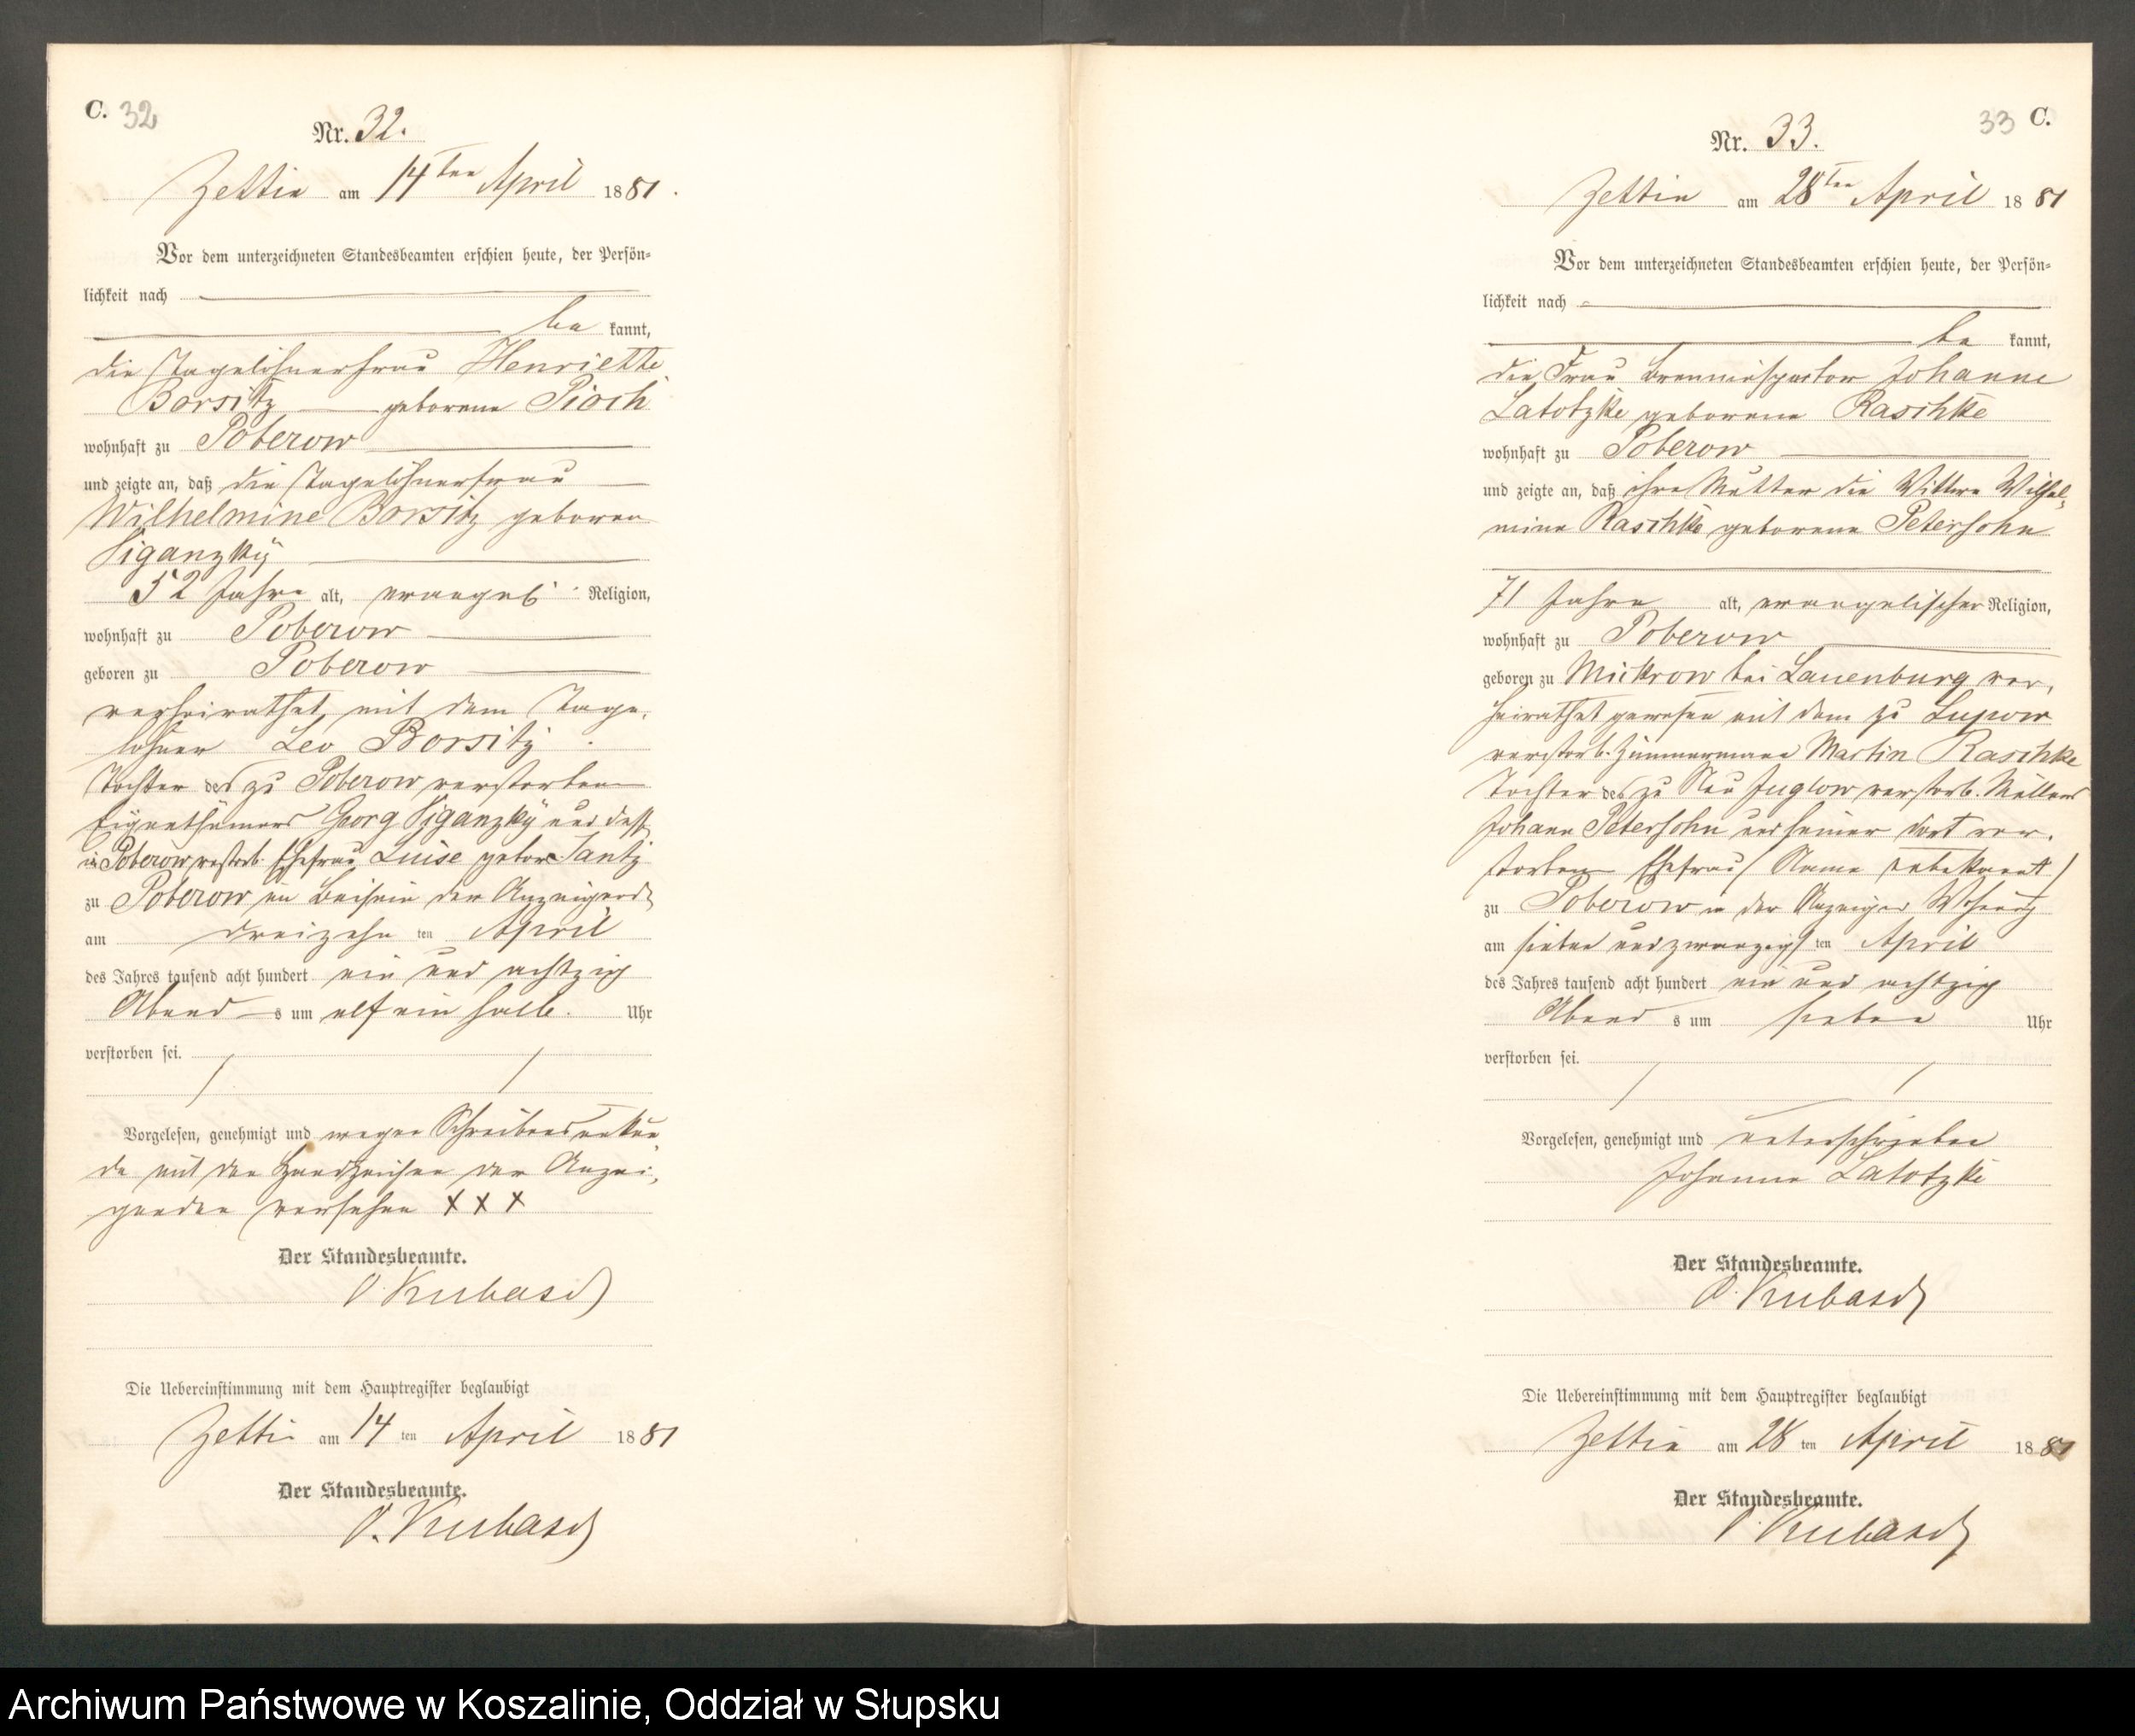 C. 32
Nr. 32.
Zettin am 14ten April 1881.
Vor dem unterzeichneten Standesbeamten erschien heute, der Persön=
lichkeit nach
be kannt,
die Tagelöhnerfrau Henriette
Borsitz geborene Pioch
wohnhaft zu Poberow
und zeigte an, daß die Tagelöhnerfrau
Wilhelmine Borsitz geboren
Siganzky
52 Jahre alt, evangel. Religion,
wohnhaft zu Poberow
geboren zu Poberow
verheirathet mit dem Tage-
löhner Leo Borsitz
Tochter des zu Poberow verstorbenen
Eigenthümers Georg Siganzky und dess
in Poberow verstorb. Ehefrau Luise gebor. Jantz
zu Poberow im Beisein der Anzeigend
am dreizehn ten April
des Jahres tausend acht hundert ein und achtzig
Abend s um elf ein halb. Uhr
verstorben sei.
Vorgelesen, genehmigt und wegen Schreibensunkun-
de mit den Handzeichen der Anzei-
genden versehen XXX
Der Standesbeamte.
O. Kubasch
Die Uebereinstimmung mit dem Hauptregister beglaubigt
Zettin am 14 ten April 1881
Der Standesbeamte.
O. Kubasch
33 C.
Nr. 33.
Zettin am 28ten April 1881
Vor dem unterzeichneten Standesbeamten erschien heute, der Persön=
lichkeit nach
be kannt,
die Frau Johanne
Latotzke geborene Raschke
wohnhaft zu Poberow
und zeigte an, daß ihre Mutter die Wittwe Wilhel-
mine Raschke geborene Petersohn
71 Jahre alt, evangelischer Religion,
wohnhaft zu Poberow
geboren zu Mickrow bei Lauenburg ver-
heirathet gewesen mit dem zu Lupow
verstorb. Zimmermann Martin Raschke
Tochter des zu Neu Juglow verstorb. Müllers
Johann Petersohn und seiner dort ver-
storbenen Ehefrau (Name unbekannt)
zu Poberow in der Anzeiger Wohnung
am sieben und zwanzigs ten April
des Jahres tausend acht hundert ein und achtzig
Abend s um sieben Uhr
verstorben sei.
Vorgelesen, genehmigt und unterschrieben
Johanne Latotzke
Der Standesbeamte.
O. Kubasch
Die Uebereinstimmung mit dem Hauptregister beglaubigt
Zettin am 28 ten April 1881
Der Standesbeamte.
O. Kubasch
Archiwum Państwowe w Koszalinie, Oddział w Słupsku